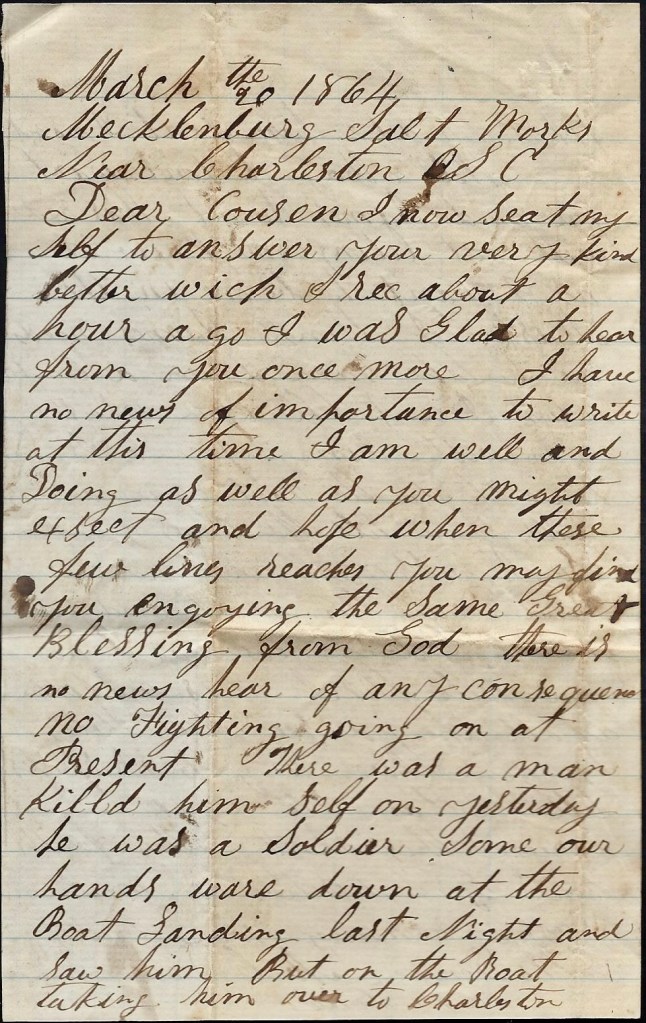 March the 20 1864
Mecklenburg Salt Works
Near Charleston S C
Dear Cousen I now seat my
self to answer your very kind
letter wich I rec about a
hour a go I was Glad to hear
from you once more I have
no news of importance to write
at this time I am well and
Doing as well as you might
exspect and hope when these
few lines reaches you may find
you engoying the same Great
Blessing from God there is
no news hear of any consequenc
No Fighting going on at
Present There was a man
Killd him self on yesterday
he was a Soldier Some our
hands ware down at the
Boat Landing last Night and
saw him Put on the Boat
taking him over to Charleston